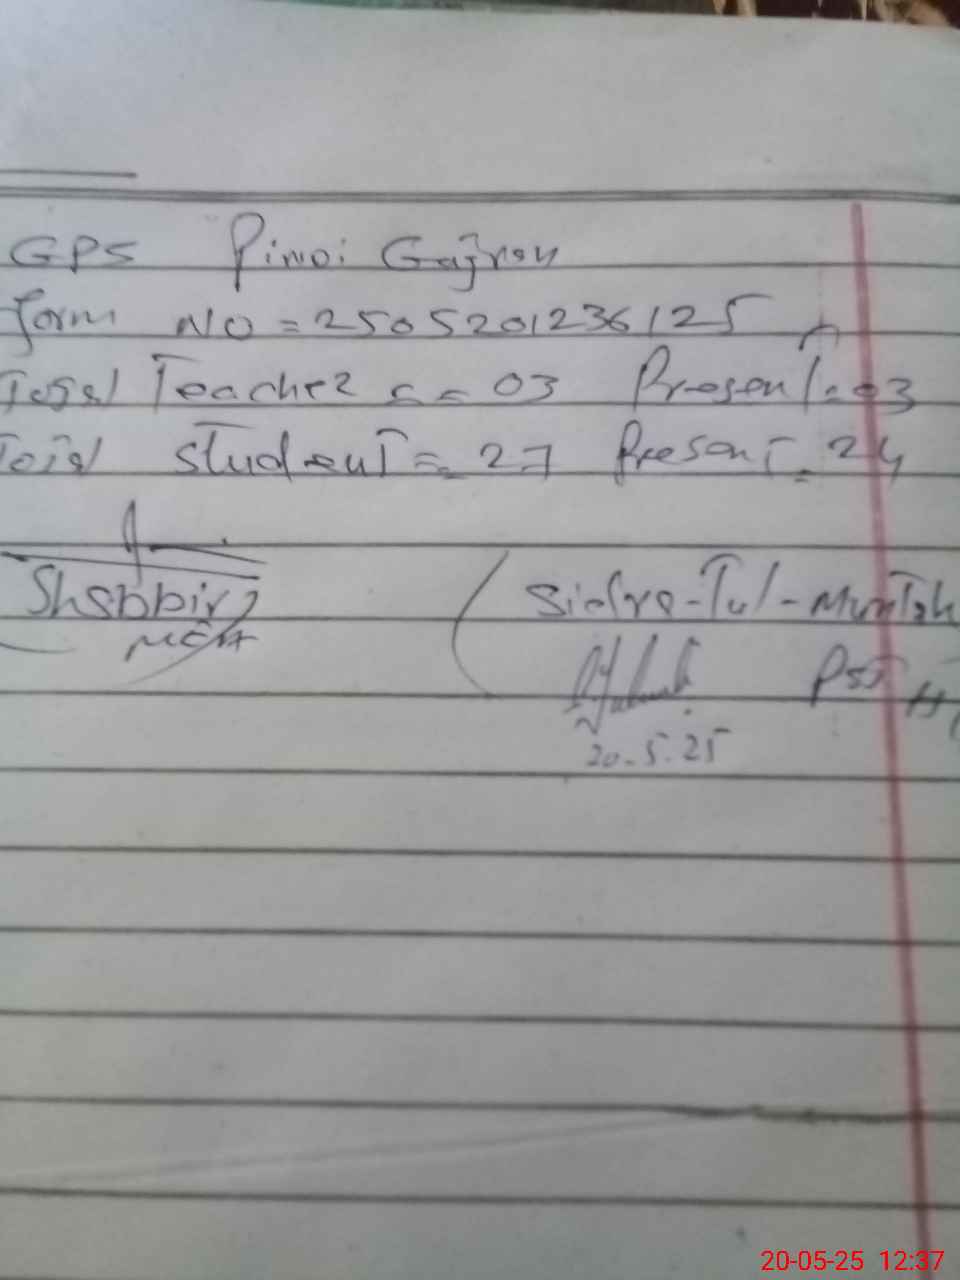 GPS Pindi Gajran
Form NO = 2505201236125
Total Teacher = = 03 Present = 03
Total Student = 27 Present = 24
Shabbir
MEA
Sidra-Tul-Muntah
PST
20.5.25
20-05-25 12:37